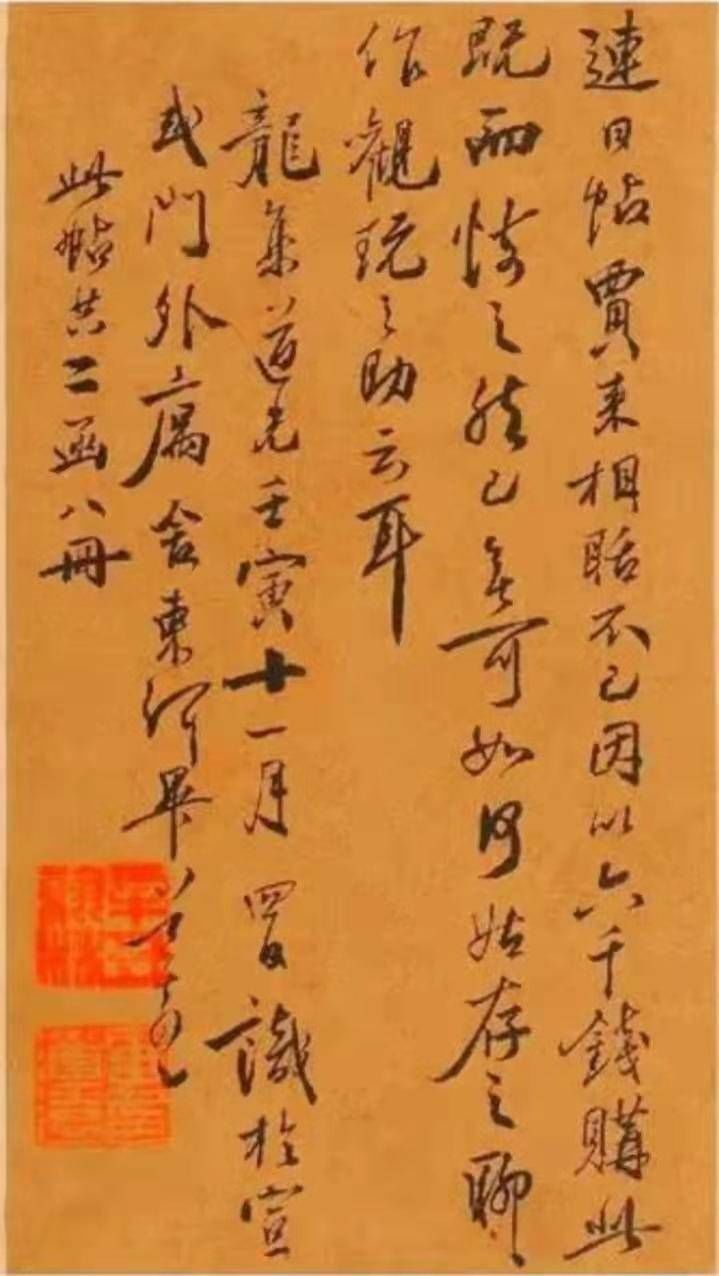 連日帖賈来相聒不已因以六千錢購此
既而悔之然已無可如何姑存之聊
作觀玩之助云耳
龍集道光壬寅十一月四日識於宣
武門外寓舍東河畢
此帖共二函八冊